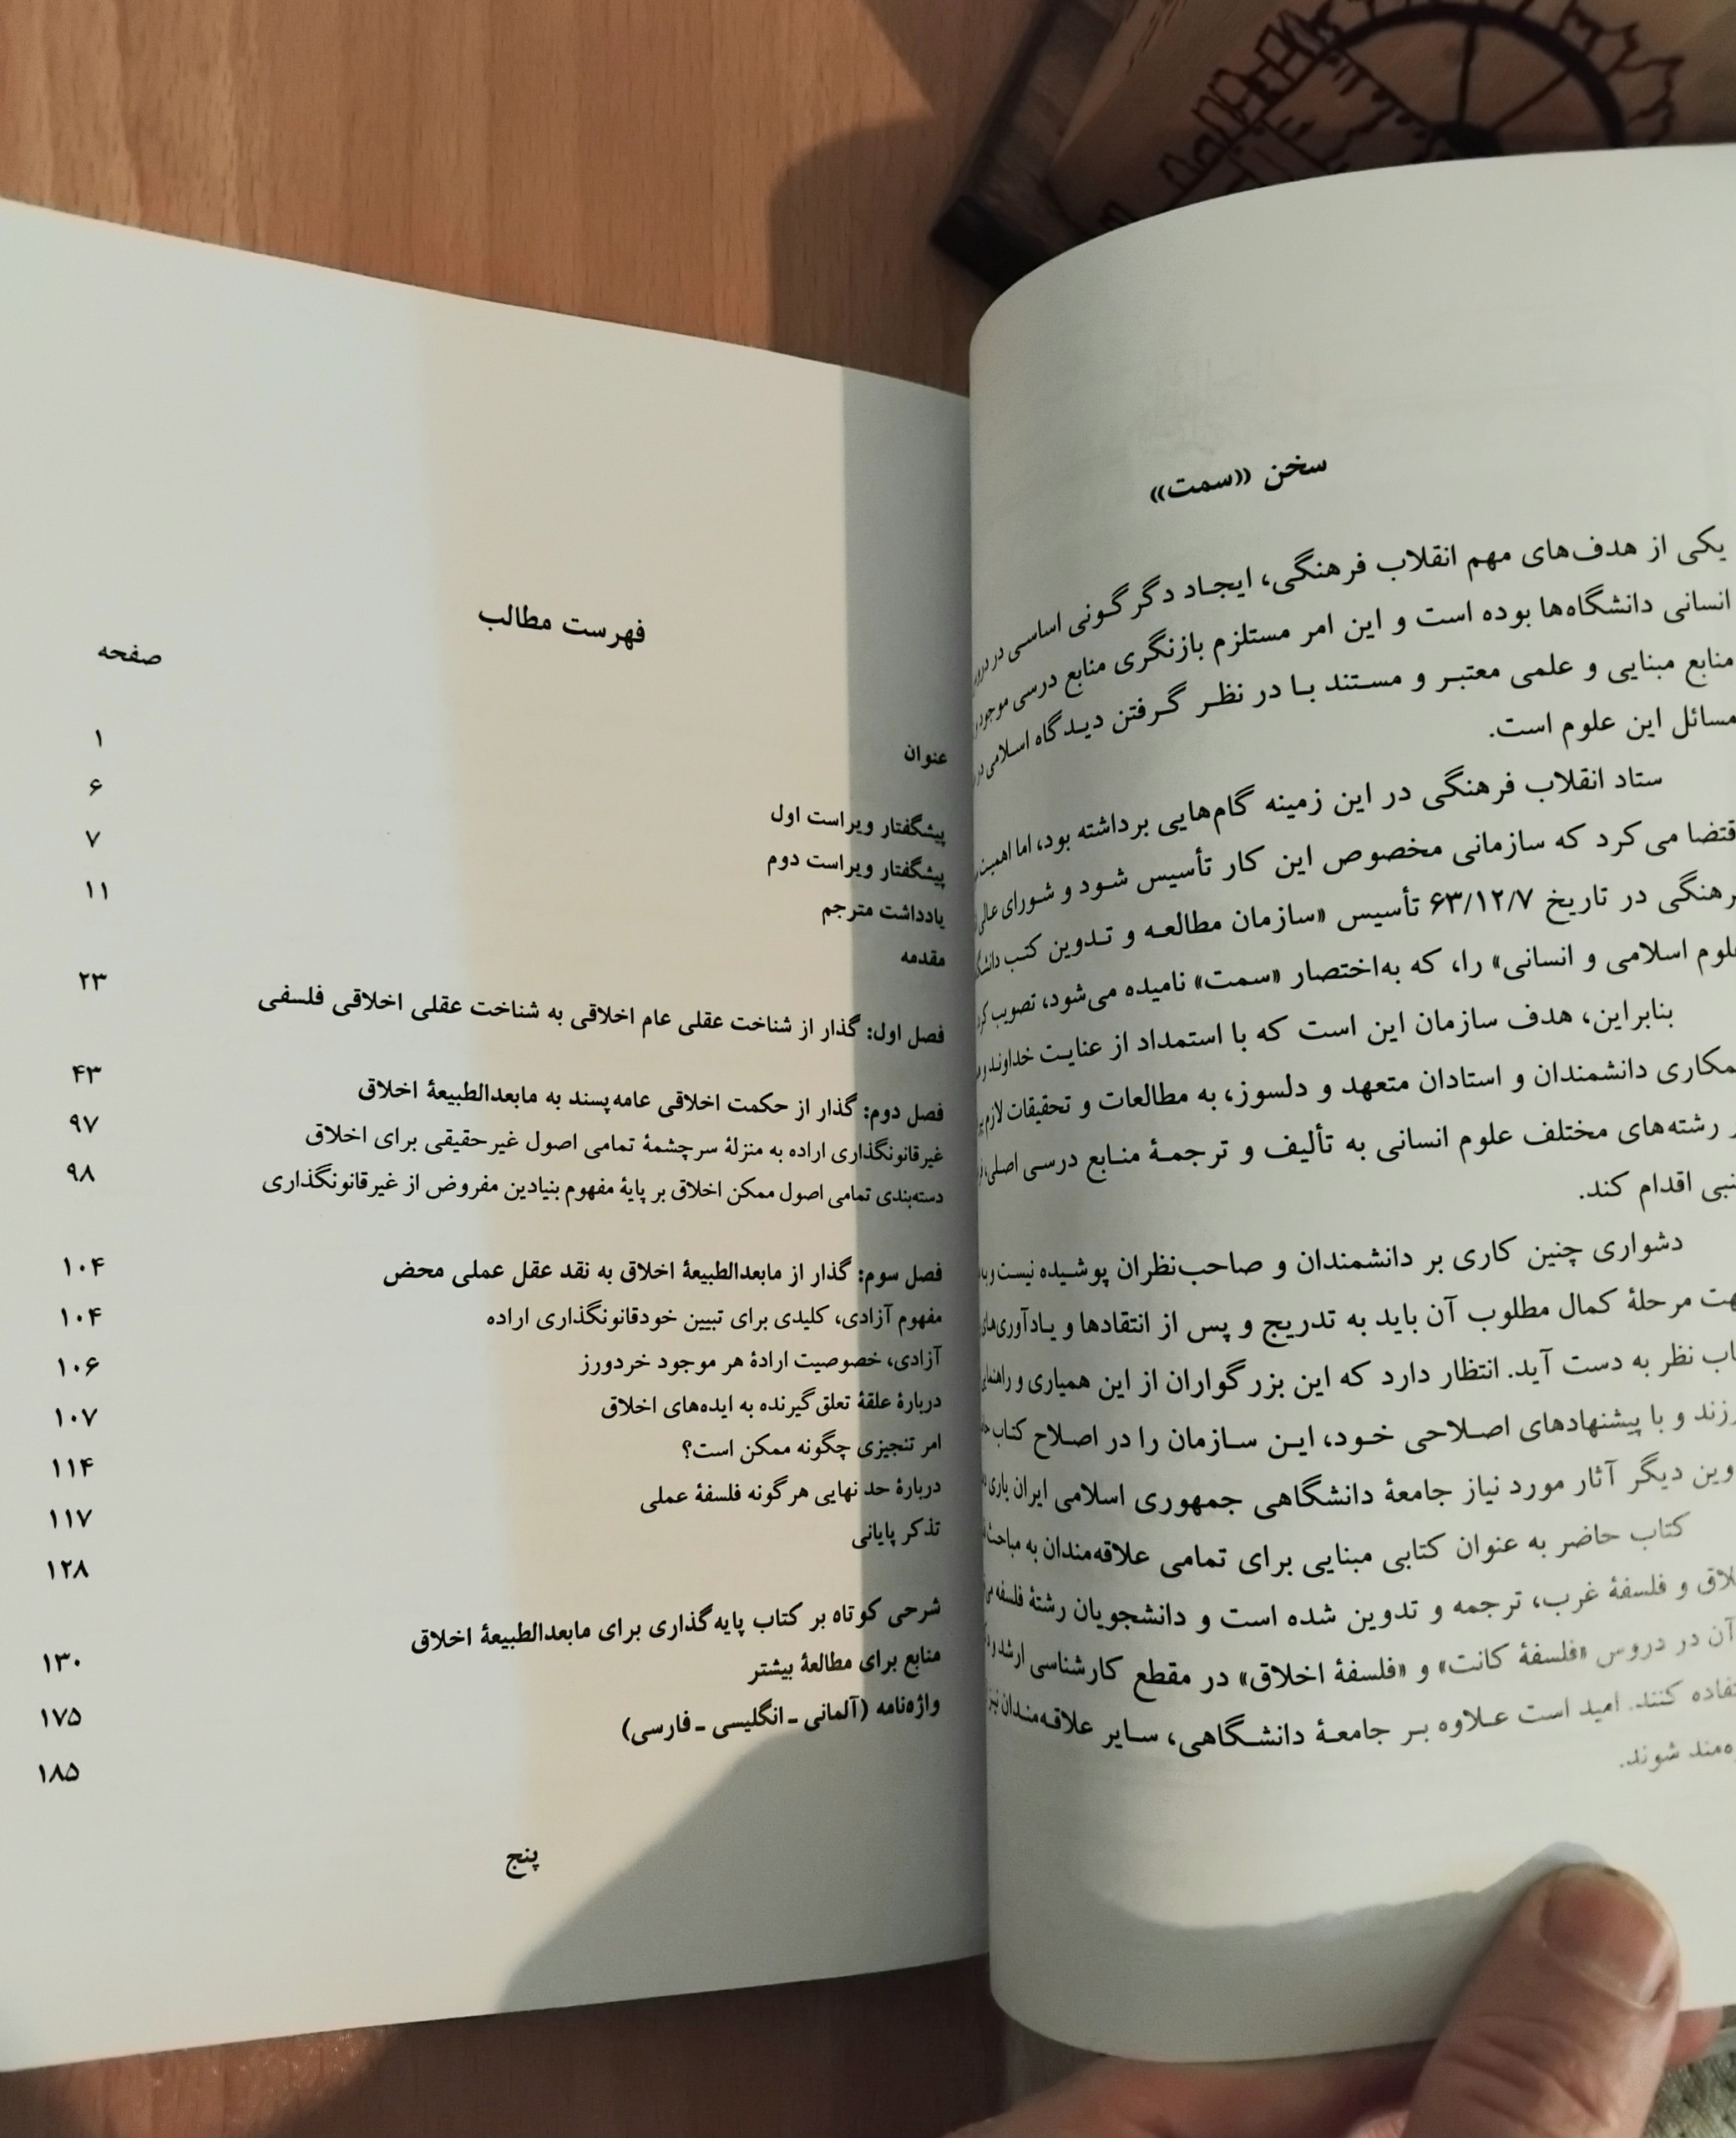 سخن «سمت»
یکی از هدف‌های مهم انقلاب فرهنگی، ایجاد دگرگونی اساسی در
انسانی دانشگاه‌ها بوده است و این امر مستلزم بازنگری منابع درسی موجود
منابع مبنایی و علمی معتبر و مستند با در نظر گرفتن دیدگاه اسلامی در
مسائل این علوم است.
ستاد انقلاب فرهنگی در این زمینه گام‌هایی برداشته بود، اما اهمیت
می‌کرد که سازمانی مخصوص این کار تأسیس شود و شورای عالی
در تاریخ ۶۳/۱۲/۷ تأسیس «سازمان مطالعه و تدوین کتب
اسلامی و انسانی» را، که به‌اختصار «سمت» نامیده می‌شود، تصویب
بنابراین، هدف سازمان این است که با استمداد از عنایت خداوند
دانشمندان و استادان متعهد و دلسوز، به مطالعات و تحقیقات لازم
رشته‌های مختلف علوم انسانی به تألیف و ترجمهٔ منابع درسی اصلی،
اقدام کند.
دشواری چنین کاری بر دانشمندان و صاحب‌نظران پوشیده نیست
مرحلهٔ کمال مطلوب آن باید به تدریج و پس از انتقادها و یادآوری‌های
نظر به دست آید. انتظار دارد که این بزرگواران از این همیاری و
و با پیشنهادهای اصلاحی خود، این سازمان را در اصلاح کتاب
دیگر آثار مورد نیاز جامعهٔ دانشگاهی جمهوری اسلامی ایران یاری
کتاب حاضر به عنوان کتابی مبنایی برای تمامی علاقه‌مندان به مباحث
و فلسفهٔ غرب، ترجمه و تدوین شده است و دانشجویان رشتهٔ فلسفه
آن در دروس «فلسفهٔ کانت» و «فلسفهٔ اخلاق» در مقطع کارشناسی ارشد
کنند. امید است علاوه بر جامعهٔ دانشگاهی، سایر علاقه‌مندان نیز
شوند.
فهرست مطالب
عنوان صفحه
پیشگفتار ویراست اول ۱
پیشگفتار ویراست دوم ۶
یادداشت مترجم ۷
مقدمه ۱۱
فصل اول: گذار از شناخت عقلی عام اخلاقی به شناخت عقلی اخلاقی فلسفی ۲۳
فصل دوم: گذار از حکمت اخلاقی عامه‌پسند به مابعدالطبیعهٔ اخلاق ۴۳
غیرقانونگذاری اراده به منزلهٔ سرچشمهٔ تمامی اصول غیرحقیقی برای اخلاق ۹۷
دسته‌بندی تمامی اصول ممکن اخلاق بر پایهٔ مفهوم بنیادین مفروض از غیرقانونگذاری ۹۸
فصل سوم: گذار از مابعدالطبیعهٔ اخلاق به نقد عقل عملی محض ۱۰۴
مفهوم آزادی، کلیدی برای تبیین خودقانونگذاری اراده ۱۰۴
آزادی، خصوصیت ارادهٔ هر موجود خردورز ۱۰۶
دربارهٔ علقهٔ تعلق‌گیرنده به ایده‌های اخلاق ۱۰۷
امر تنجیزی چگونه ممکن است؟ ۱۱۴
دربارهٔ حد نهایی هرگونه فلسفهٔ عملی ۱۱۷
تذکر پایانی ۱۲۸
شرحی کوتاه بر کتاب پایه‌گذاری برای مابعدالطبیعهٔ اخلاق ۱۳۰
منابع برای مطالعهٔ بیشتر ۱۷۵
واژه‌نامه (آلمانی ـ انگلیسی ـ فارسی) ۱۸۵
پنج